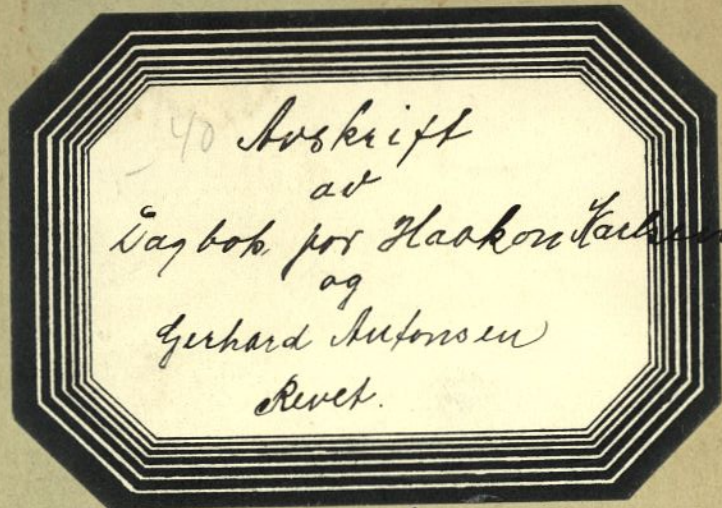 40
Avskrift
av
Dagbok for Haakon Karlsen
og
Gerhard Antonsen
Revet.